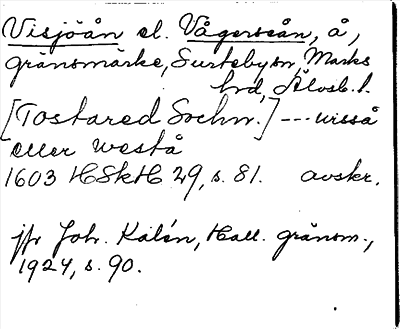 Visjöån el. Vågerseån, å,
gränsmärke, Surteby sn, Marks
hd, Älvsb. l.
[Tostared Sochn.] --- wisså
eller westå
1603 HSkH 29, s. 81. avskr.
jfr Joh. Kalén, Hall. gränsm.,
1924, s. 90.